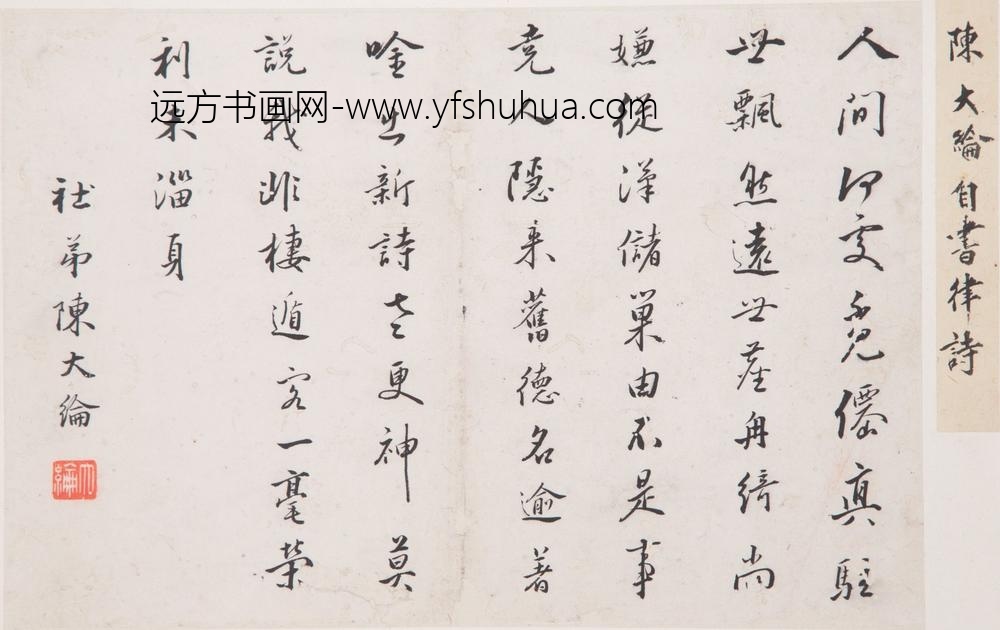 陳大綸自書律詩
人間何處覓僊真駐
世飄然遠世塵角綺尚
嫌從漢儲巢由不是事
堯人隱來舊德名逾著
唫出新詩老更神莫
說我非棲遁客一毫榮
利未淄身
社弟陳大綸
大綸
远方书画网-www.yfshuhua.com